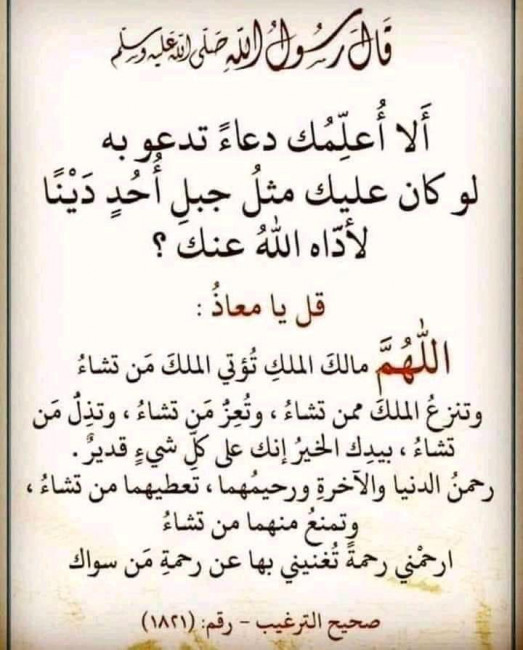 قَالَ رَسُولُ اللَّهِ صَلَّى اللَّه عَلَيْهِ وَسَلَّم
أَلا أُعلِّمُك دعاءً تدعو به
لو كان عليك مثلُ جبلِ أُحُدٍ دَيْنًا
لأدّاه اللهُ عنك ؟
قل يا معاذُ :
اللَّهُمَّ مالكَ الملكِ تُؤتي الملكَ مَن تشاءُ
وتنزعُ الملكَ ممن تشاءُ ، وتُعِزُّ مَن تشاءُ ، وتذِلُّ مَن
تشاءُ ، بيدِك الخيرُ إنك على كلِّ شيءٍ قديرٌ .
رحمنُ الدنيا والآخرةِ ورحيمُهما ، تعطيهما من تشاءُ ،
وتمنعُ منهما من تشاءُ
ارحمْني رحمةً تُغنيني بها عن رحمةِ مَن سواك
صحيح الترغيب - رقم: (١٨٢١)